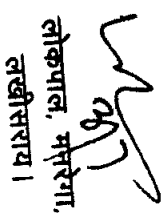 लोकपाल, मनरेगा,
लखीसराय।